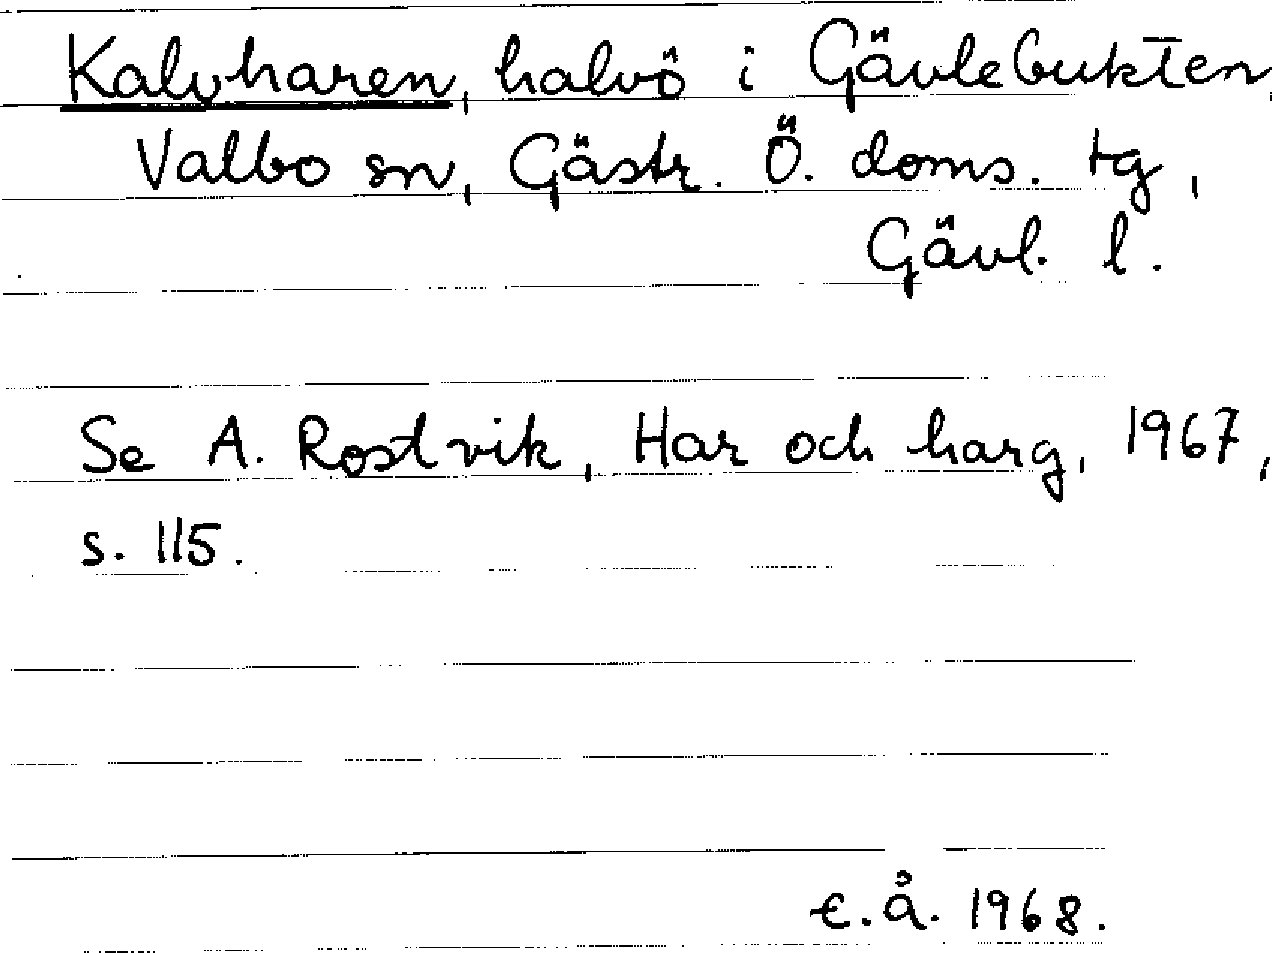 Kalvharen, halvö i Gävlebukten,
Valbo sn, Gästr. Ö. doms. tg,
Gävl. l.
Se A. Rostvik, Har och harg, 1967,
s. 115.
E.Å. 1968.